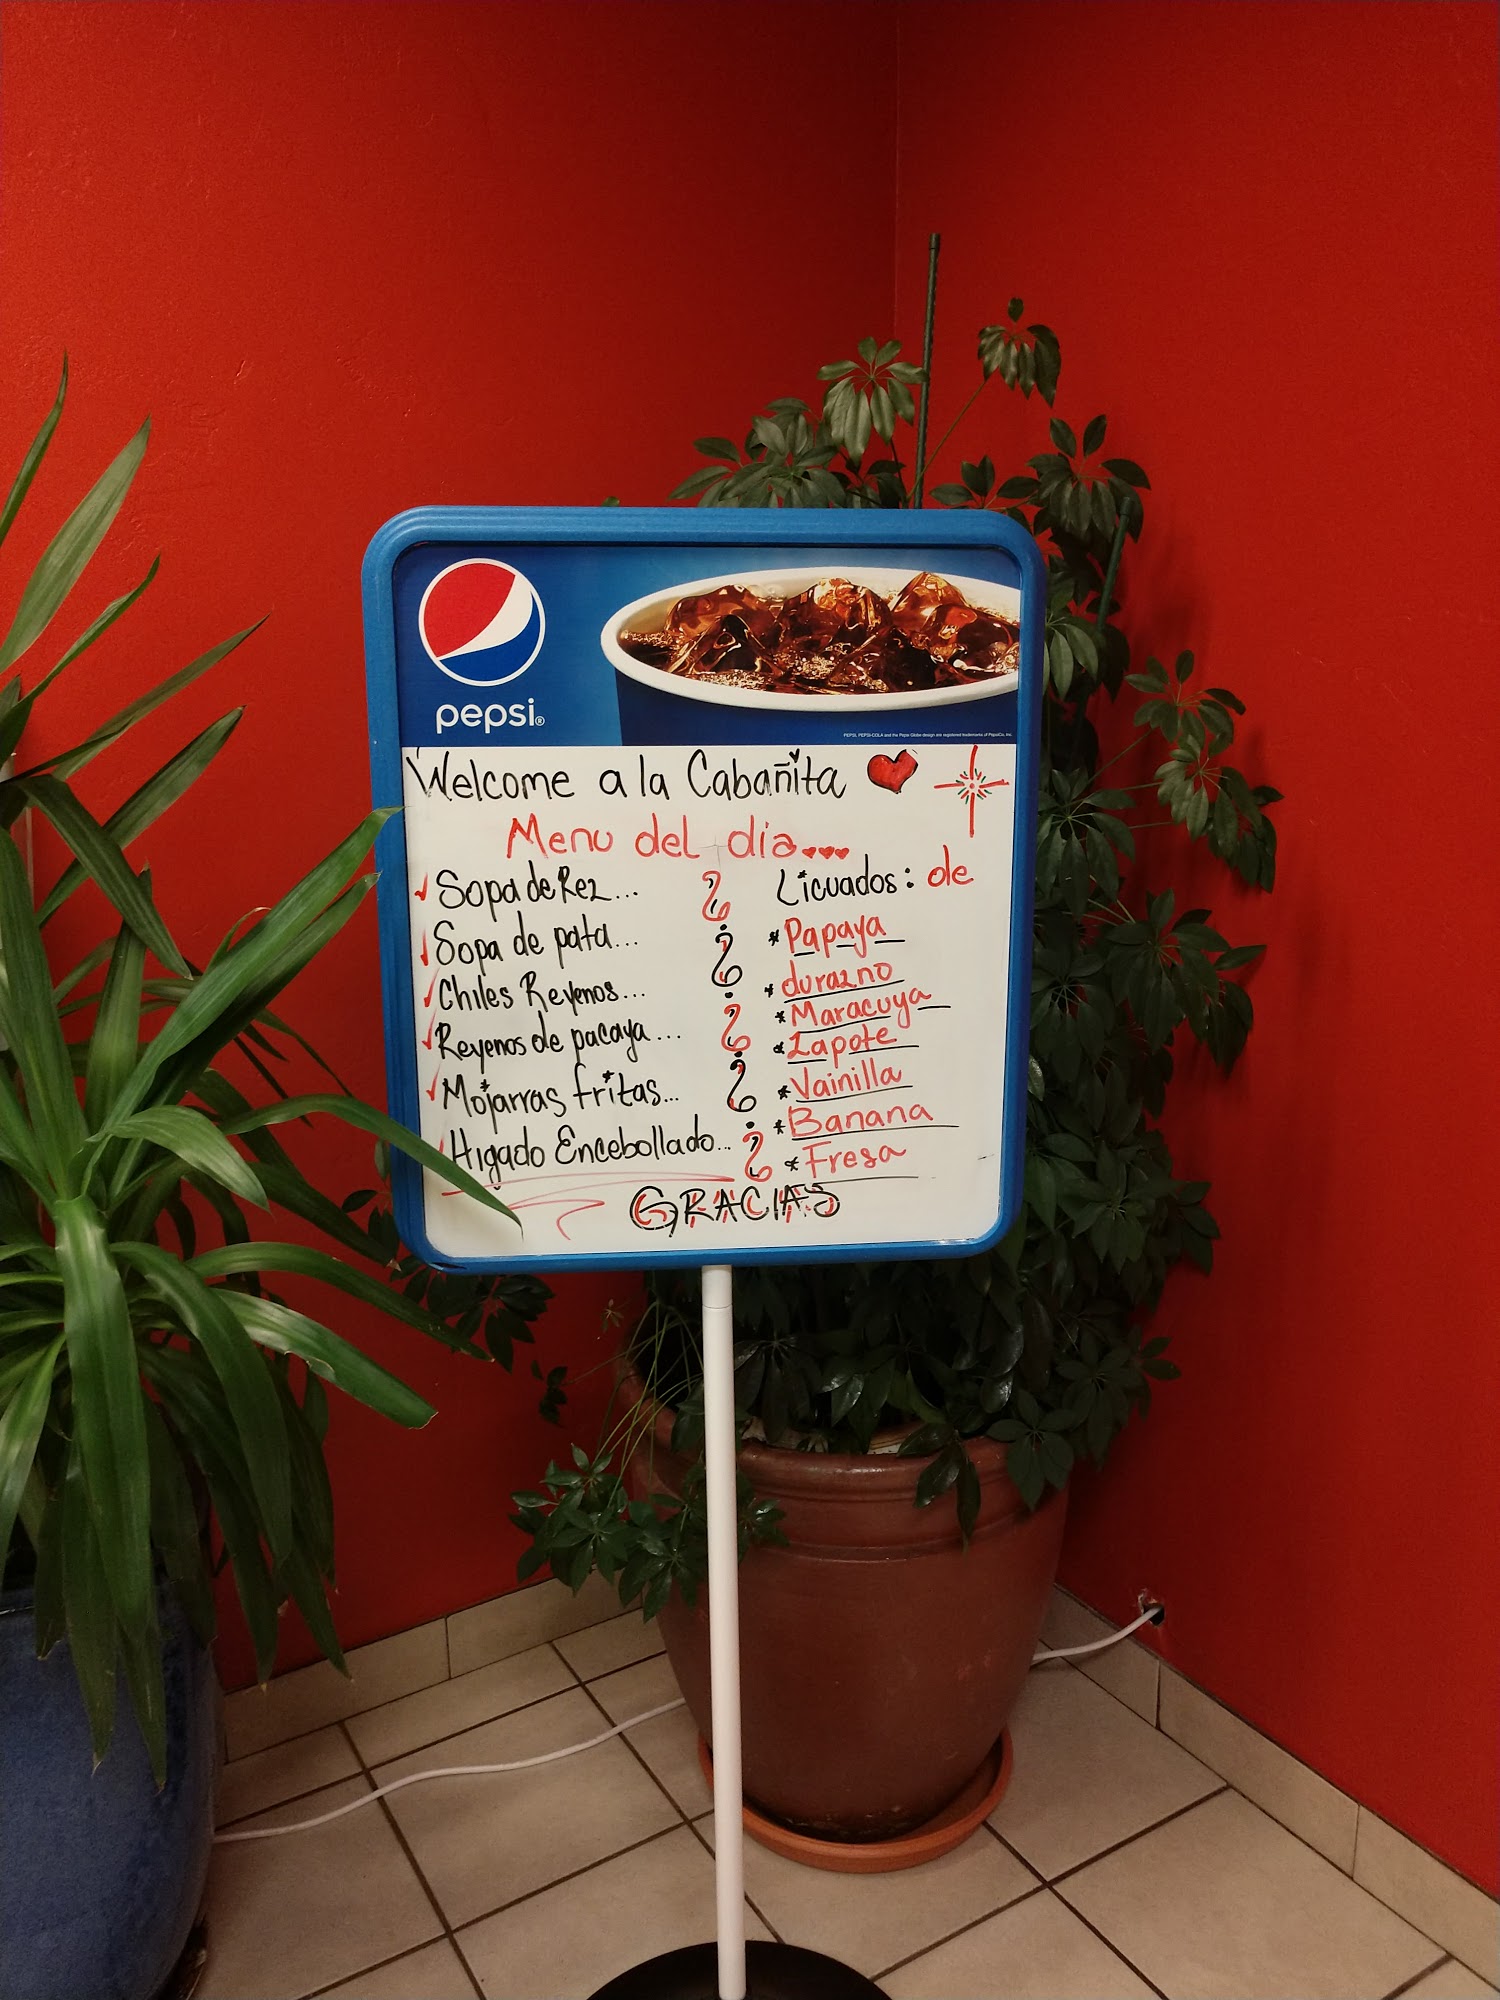 pepsi®
PEPSI, PEPSI-COLA and the Pepsi Globe design are registered trademarks of PepsiCo, Inc.
Welcome a la Cabañita
Menu del dia...
Sopa de Rez...
Sopa de pata...
Chiles Reyenos...
Reyenos de pacaya...
Mojarras fritas...
Higado Encebollado...
Licuados: de
* Papaya
* durazno
* Maracuya
* Zapote
* Vainilla
* Banana
* Fresa
GRACIAS